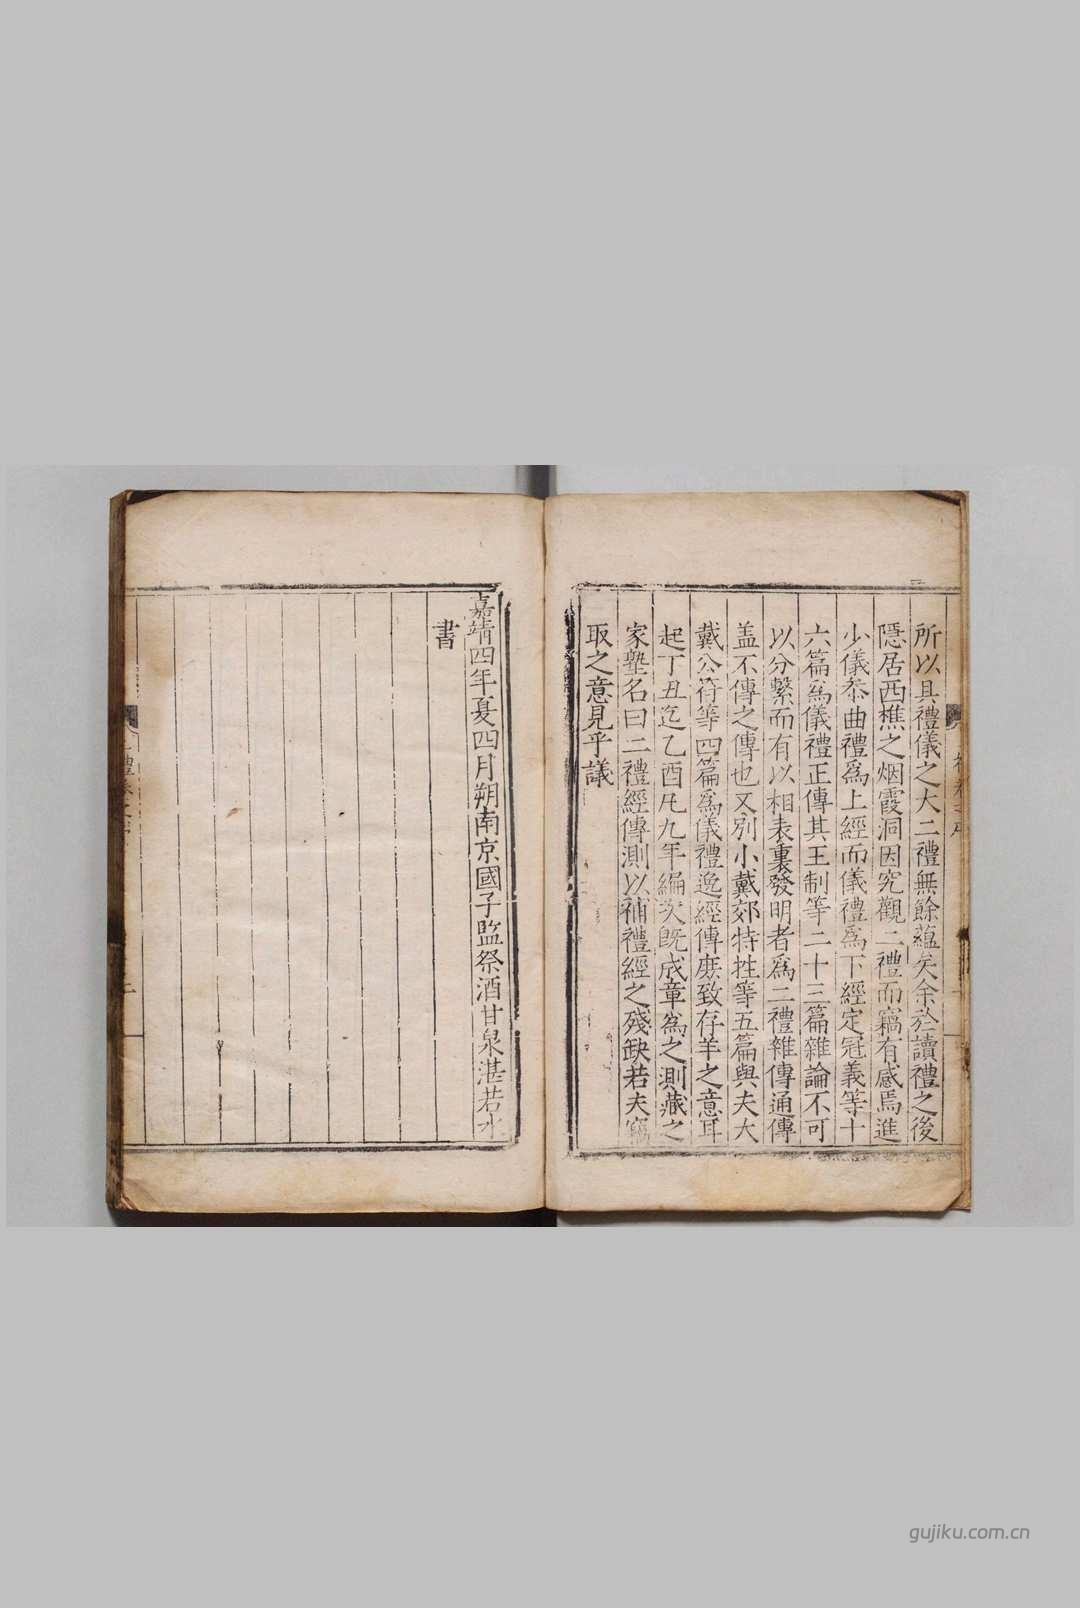 所以具禮儀之大二禮無餘蘊矣余於讀禮之後
隱居西樵之烟霞洞因究觀二禮而竊有感焉進
少儀叅曲禮爲上經而儀禮爲下經定冠義等十
六篇爲儀禮正傳其王制等二十三篇雜論不可
以分繫而有以相表裏發明者爲二禮雜傳通傳
盖不傳之傳也又别小戴郊特牲等五篇與夫大
戴公符等四篇爲儀禮逸經傳庶致存羊之意耳
起丁丑迄乙酉凡九年編次旣成章爲之測藏之
家塾名曰二禮經傳測以補禮經之殘缺若夫竊
取之意見乎議
嘉靖四年夏四月朔南京國子監祭酒甘泉湛若水
書
gujiku.com.cn